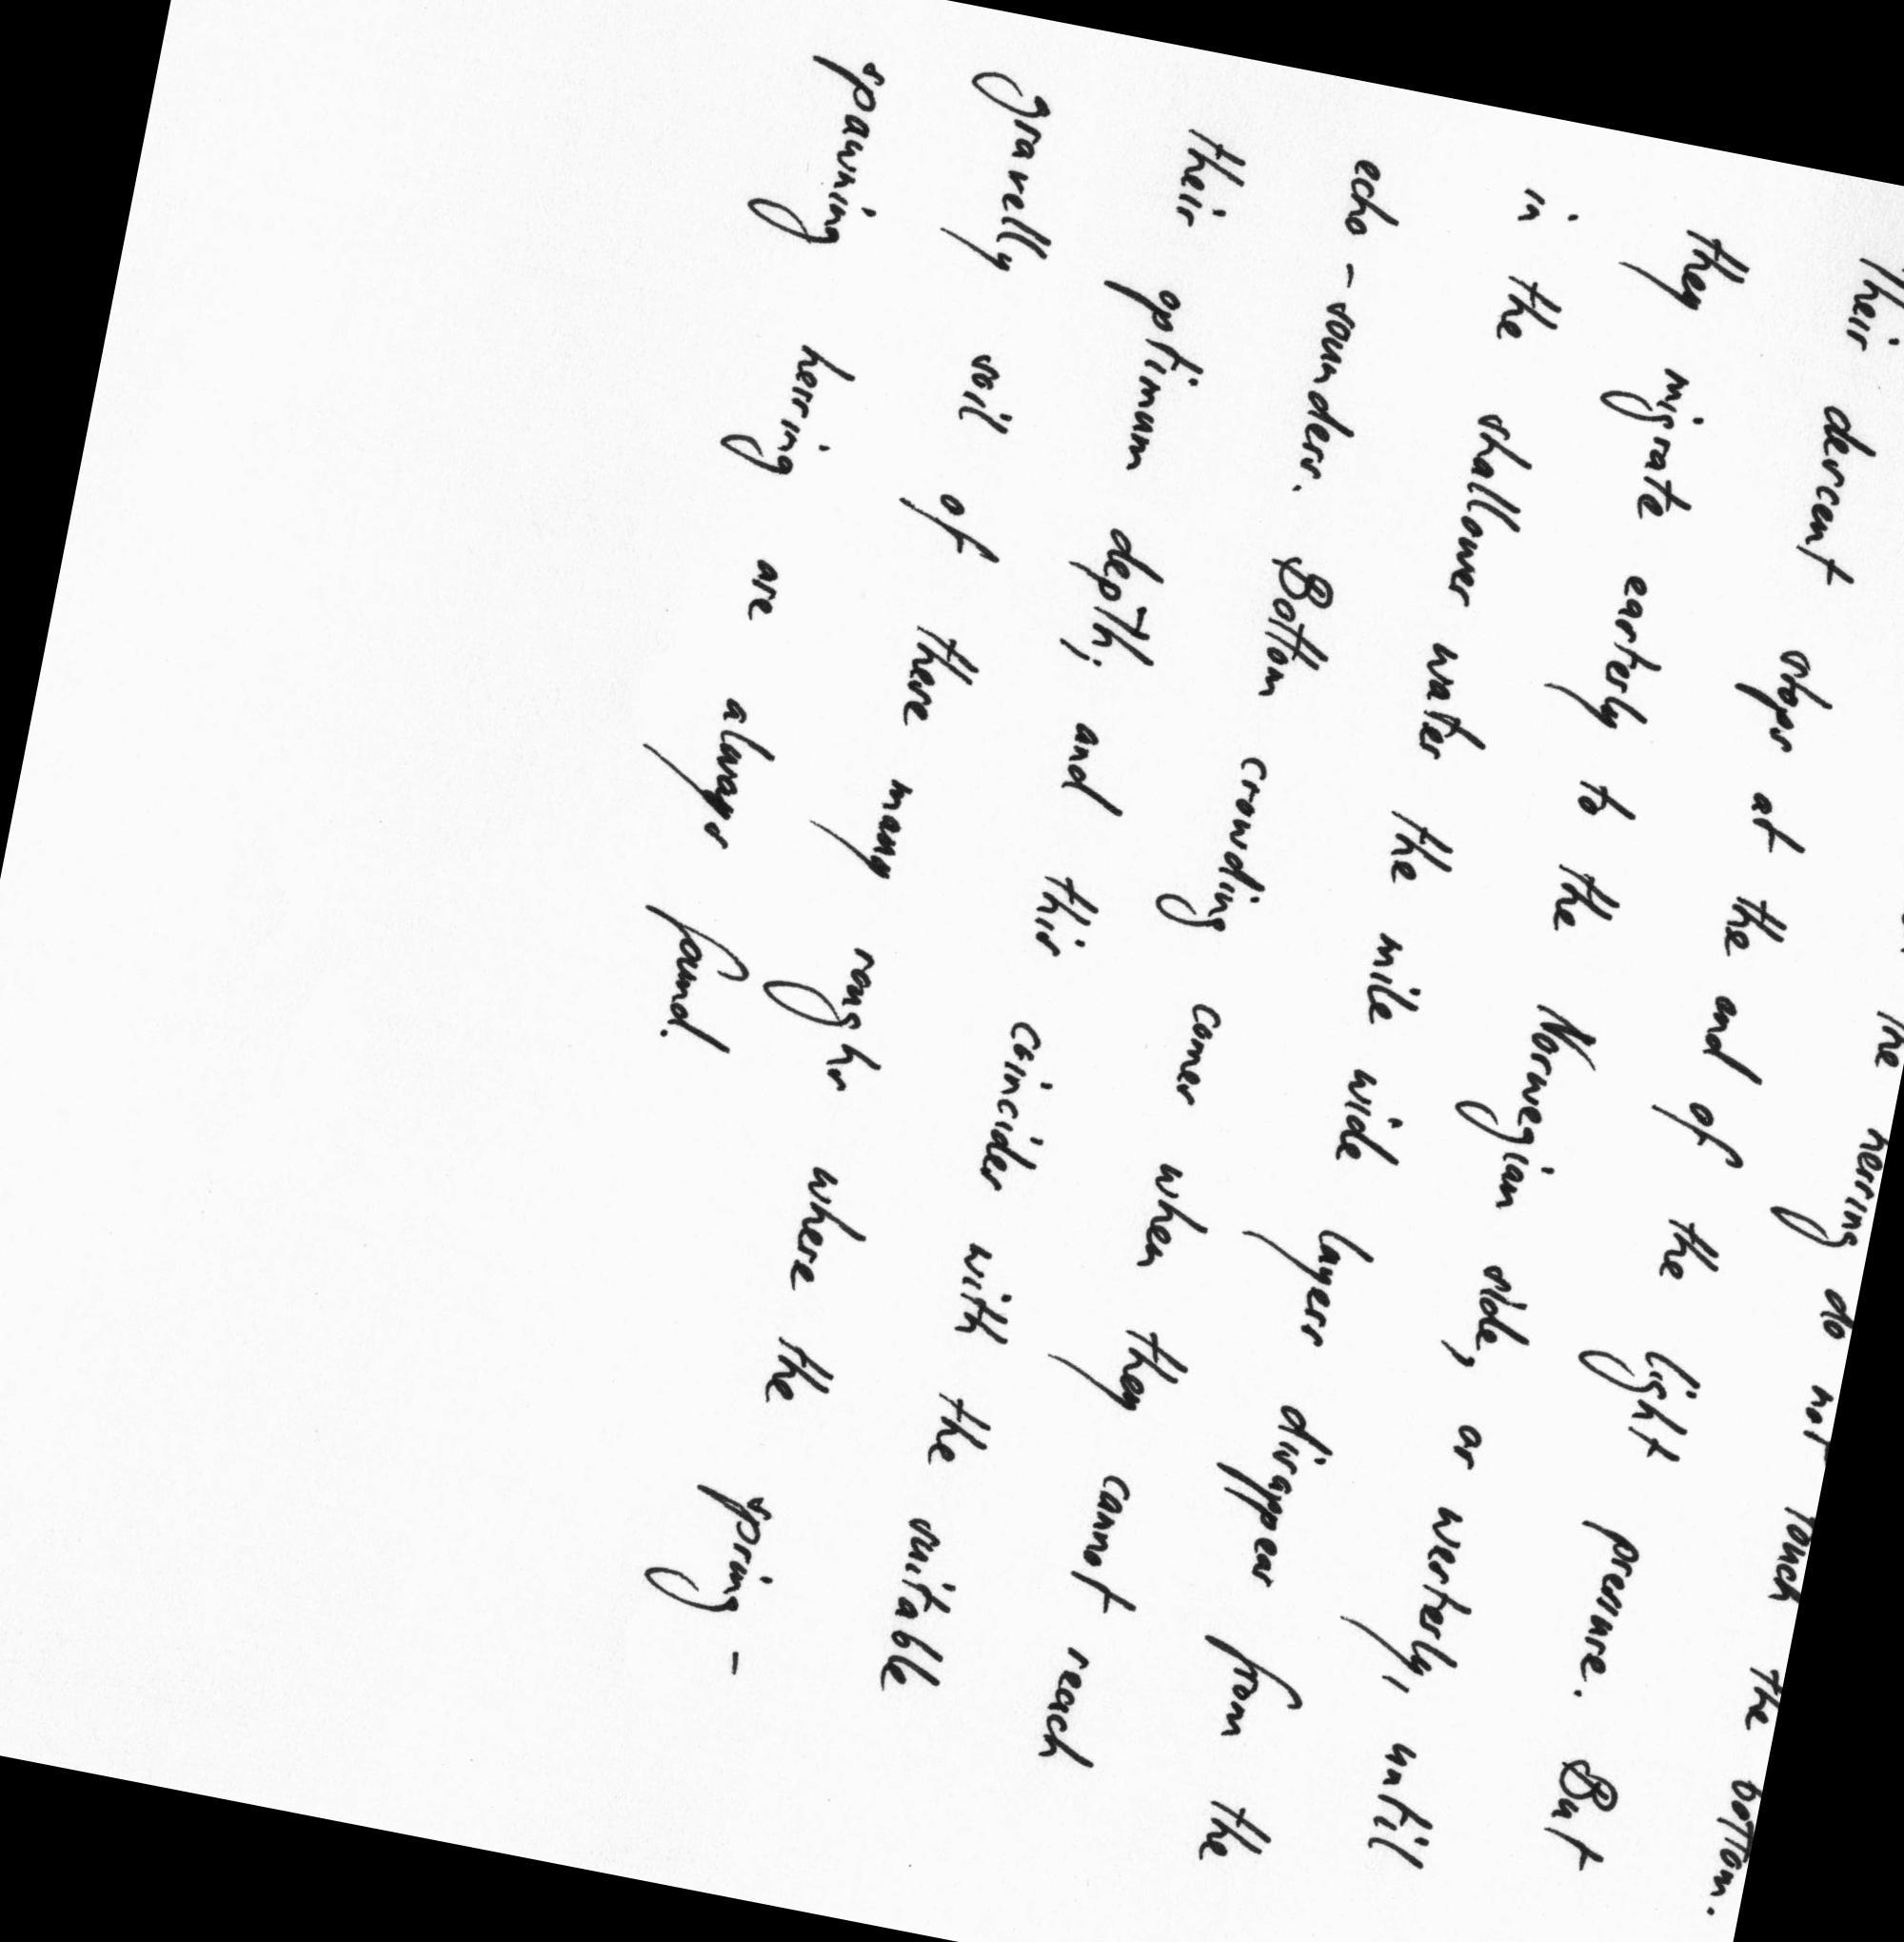 the herring do not touch the bottom.
Their descent stops at the and of the light pressure. But
they migrate easterly to the Norwegian side, or westerly, until
in the shallower water the mile wide layers disappear from the
echo-sounders. Bottom crowding comes when they cannot reach
their optimum depth; and this coincides with the suitable
gravelly soil of these many roughs where the spring-
spawning herring are always found.